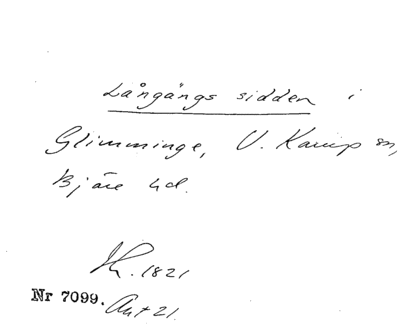 Långängs sidden i
Glimminge, V. Karup sn,
Bjäre hd.
1821
Nr 7099. Ant 21.